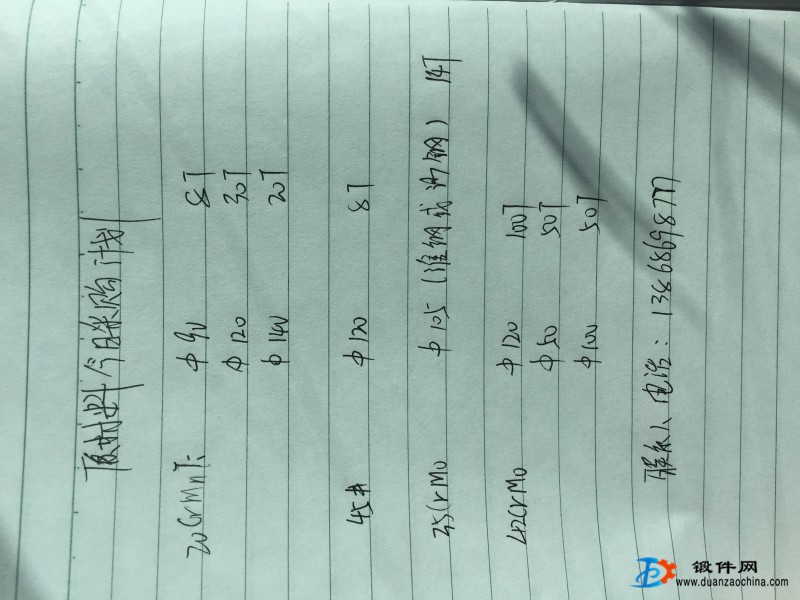 原材料今月采购计划
20CrMnTi φ90 8T
φ120 30T
φ140 20T
45# φ120 8T
35CrMo φ105 (淮钢或沙钢) 14T
42CrMo φ120 100T
φ50 50T
φ100 50T
联系人电话:
锻件网
www.duanzaochina.com